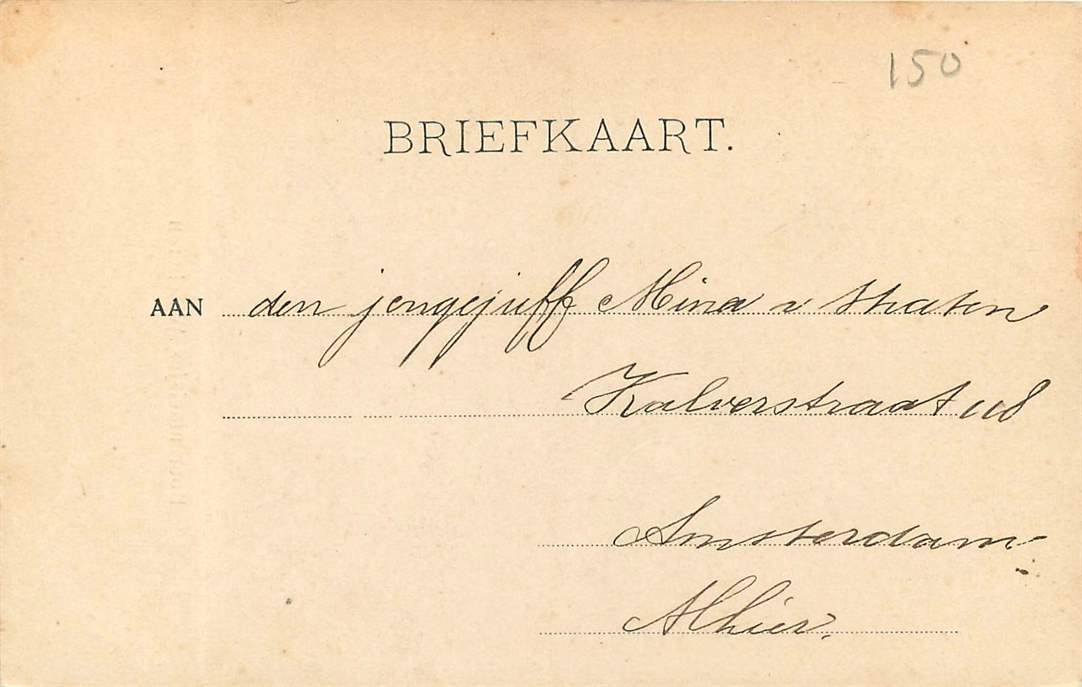 150
BRIEFKAART.
AAN den jongejuff Mina v Straten
Kalverstraat 118
Amsterdam
Alhier.